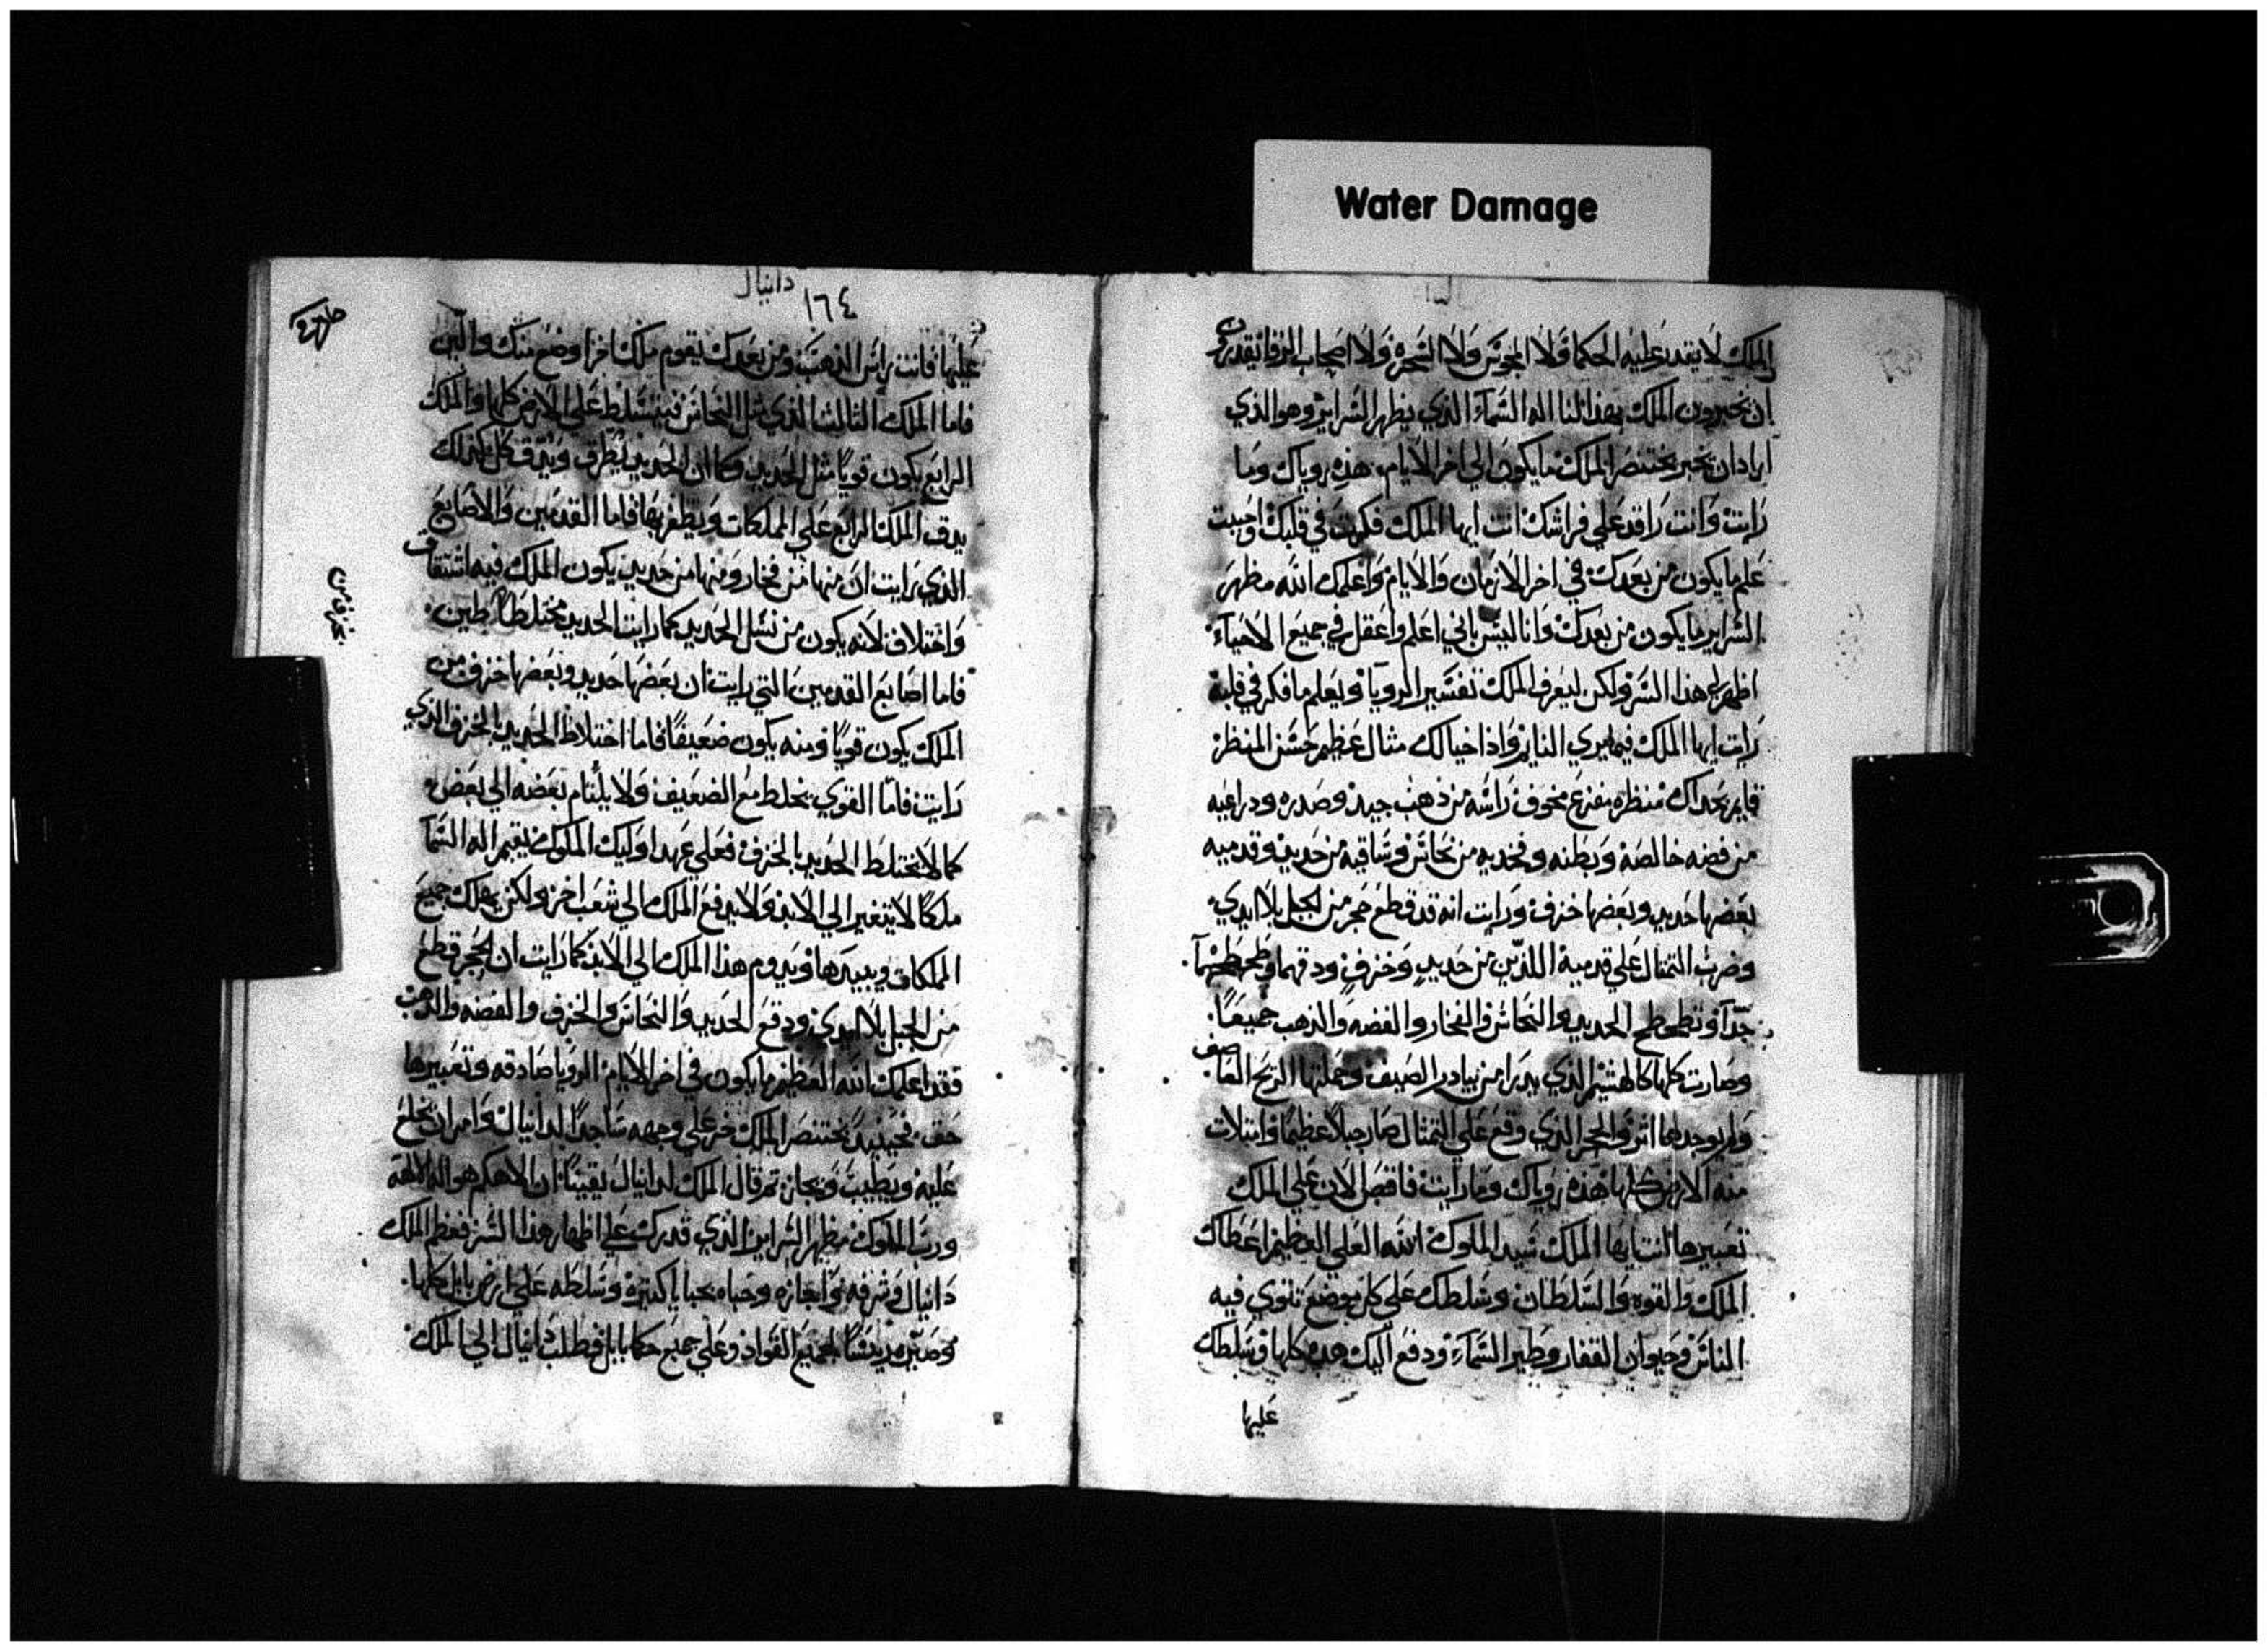 Water Damage
الملك لا يقدر عليه الحكما ولا المجوس ولا السحره ولا اصحاب الرقا يقدرون
ان يخبرون الملك بهذا لنا اله السماء الذي يظهر السراير وهو الذي
اراد ان يخبر بختنصر الملك ما يكون الي اخر الايام هذه روياك وما
رايت وانت راقد علي فراشك انت ايها الملك فكرت في قلبك واحببت
علم ما يكون من بعدك في اخر الازمان والايام واعلمك الله مظهر
السراير ما يكون من بعدك وانا ليس باني اعلم واعقل في جميع الاحياء
اظهر لي هذا السر ولكن ليعرف الملك تفسير الرويا ويعلم ما فكر في قلبه
رايت ايها الملك فيما يري النايم واذا خيالك مثال عظيم حسن المنظر
قايم بحداك منظره مفزع مخوف راسه من ذهب جيد وصدره ودراعيه
من فضه خالصه وبطنه وفخديه من نحاس وساقيه من حديد وقدميه
بعضها حديد وبعضها خزف ورايت انه قد قطع حجر من لجبل بلا ايدي
وضرب التمثال علي قدميه اللدين من حديد وخزف ودقهما وطحطحهما
جدآ وتطحطح الحديد والنحاس والفخار والفضه والذهب جميعًا
وصارت كلها كالهشيم الذي يدرا من بيادر الصيف وحملتها الريح العاصف
ولم يوجد لها اثر والحجر الذي وقع علي التمثال صار جبلا عظيما وامتلات
منه الارض كلها هذه روياك وما رايت فاقصص الان علي الملك
تعبيرها انت ايها الملك سيد الملوك الله العلي العظيم اعطاك
الملك والقوه والسلطان وسلطك علي كل موضع تنوي فيه
الناس وحيوان القفار وطير السماء ودفع اليك هذه كلها وسلطك
عليها
دانيال
١٦٤
عليها فانت راس الذهب ومن بعدك يقوم ملك اخر اوضع منك والين
فاما الملك الثالث الذي مثل النحاس فيتسلط علي الارض كلها والملك
الرابع يكون قويًا مثل الحديد وكما ان الحديد يطرق ويدق كل كذلك
يدق الملك الرابع علي المملكات ويظفر بها فاما القدمين والاصابع
الذي رايت ان منها من فخار ومنها من حديد يكون الملك فيه اشتقاق
واختلاف لانه يكون من نسل الحديد كما رايت الحديد مختلطًا بطين
فاما اصابع القدمين التي رايت ان بعضها حديد وبعضها خزف من
الملك يكون قويًا ومنه يكون ضعيفًا فاما اختلاط الحديد بالخزف الذي
رايت فاما القوي يختلط مع الضعيف ولا يلتام بعضه الي بعض
كما لا يختلط الحديد بالخزف فعلي عهد اوليك الملوك يقيم اله السما
ملكًا لا يتغير الي الابد ولا يدفع الملك الي شعب اخر ولكن يهلك جميع
المملكات ويبيدها ويدوم هذا الملك الي الابد كما رايت ان الحجر قطع
من الجبل بلا ايدي ودقع الحديد والنحاس والخزف والفضه والذهب
فقد اعلمك الله العظيم ما يكون في اخر الايام الرويا صادقه وتعبيرها
حق فحينيد بختنصر الملك خر علي وجهه ساجدًا لدانيال وامر ان يخلع
عليه ويطيب ويجاز ثم قال الملك لدانيال يقينًا ان الاهكم هو اله الالهه
ورب الملوك مظهر السراير الذي قدرت علي اظهار هذا السر فعظم الملك
دانيال وشرفه واجازه وحباه بحبايا كتيره وسلطه علي ارض بابل كلها
وصيره رييسًا لجميع القواد وعلي جميع حكما بابل فطلب دانيال الي الملك